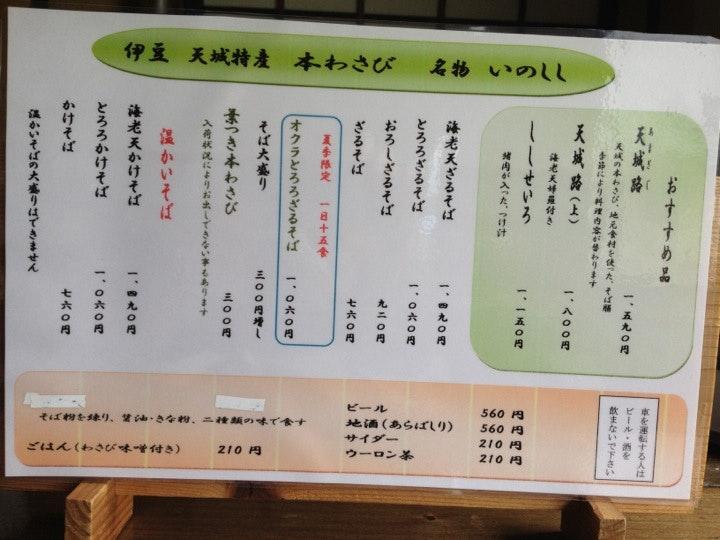 伊豆 天城特産 本わさび 名物 いのしし
おすすめ品
あまぎじ
天城路 一、五九〇円
天城の本わさび、地元食材を使った、そば膳
季節により料理内容が替わります
天城路(上) 一、八〇〇円
海老天婦羅付き
ししせいろ 一、一五〇円
猪肉が入った、つけ汁
海老天ざるそば 一、四九〇円
とろろざるそば 一、〇六〇円
おろしざるそば 九二〇円
ざるそば 七六〇円
夏季限定 一日十五食
オクラとろろざるそば 一、〇六〇円
そば大盛り 三〇〇円増し
葉つき本わさび 三〇〇円
入荷状況によりお出しできない事もあります
温かいそば
海老天かけそば 一、四九〇円
とろろかけそば 一、〇六〇円
かけそば 七六〇円
温かいそばの大盛りはできません
そば粉を練り、醤油・きな粉、二種類の味で食す
ごはん(わさび味噌付き) 210円
ビール 560円
地酒(あらばしり) 560円
サイダー 210円
ウーロン茶 210円
車を運転する人は
ビール・酒を
飲まないで下さい